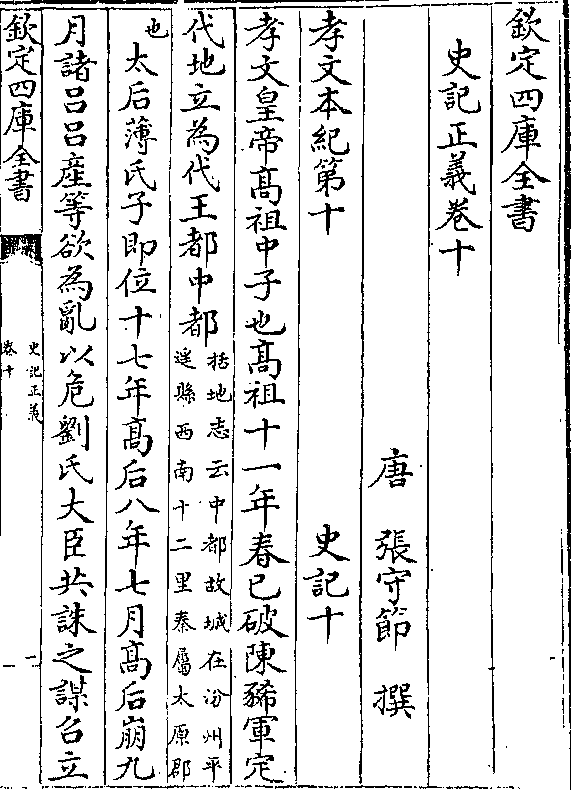 欽定四庫全書
史記正義卷十
唐 張守節 撰
孝文本紀第十 史記十
孝文皇帝髙祖中子也髙祖十一年春已破陳豨軍定
代地立為代王都中都
括地志云中都故城在汾州平
遥縣西南十二里秦屬太原郡
也
太后薄氏子即位十七年髙后八年七月髙后崩九
月諸吕吕產等欲為亂以危劉氏大臣共誅之謀召立
欽定四庫全書
史記正義
卷十
一